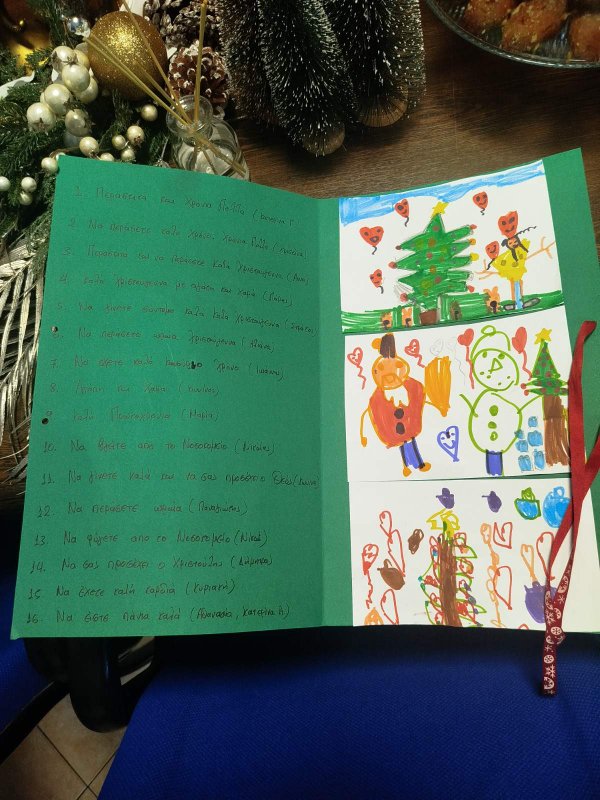 1. Περαστικα και Χρόνια Πολλα (Κατερίνα Γ.)
2. Να περάσετε καλά Χρόνια Χρόνια Πολλά
3. Περαστικα και να περάσετε Καλά Χριστουγεννα (Άννα)
4. Καλά Χριστουγεννα με αγάπη και χαρά
5. Να γίνετε σύντομα καλά Καλά Χριστουγεννα
6. Να περάσετε ωραια Χριστουγεννα
7. Να έχετε καλό Καινούριο Χρόνο (Ιωάννα)
8. Αγάπη και Χαρά
9. Καλή Πρωτοχρονια (Μαρία)
10. Να βγείτε απο το Νοσοκομείο (Νικολας)
11. Να γίνετε καλά και να σας προσεχει ο
12. Να περάσετε ωραια (Παναγιώτης)
13. Να φύγετε απο το Νοσοκομείο (Νικολ)
14. Να σας προσέχει ο Χριστούλης (Δήμητρα)
15. Να έχετε καλή καρδιά (Κυριακή)
16. Να είστε πάντα καλά (Αθανασία, Κατερίνα Λ.)